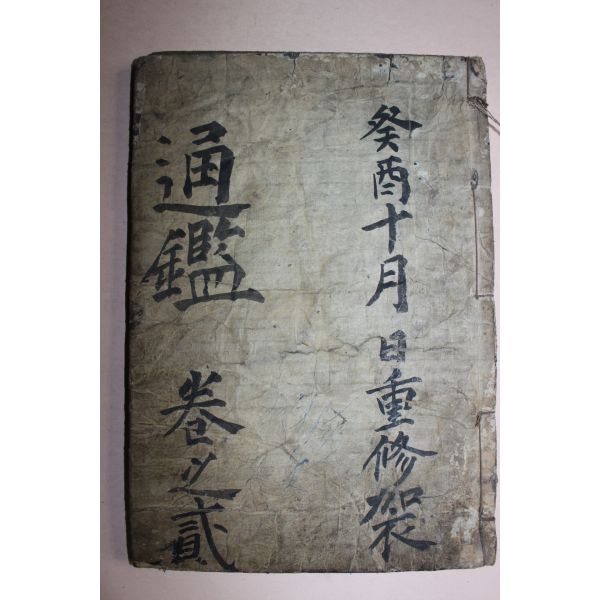 癸酉十月 日重修架
通鑑 卷之貳